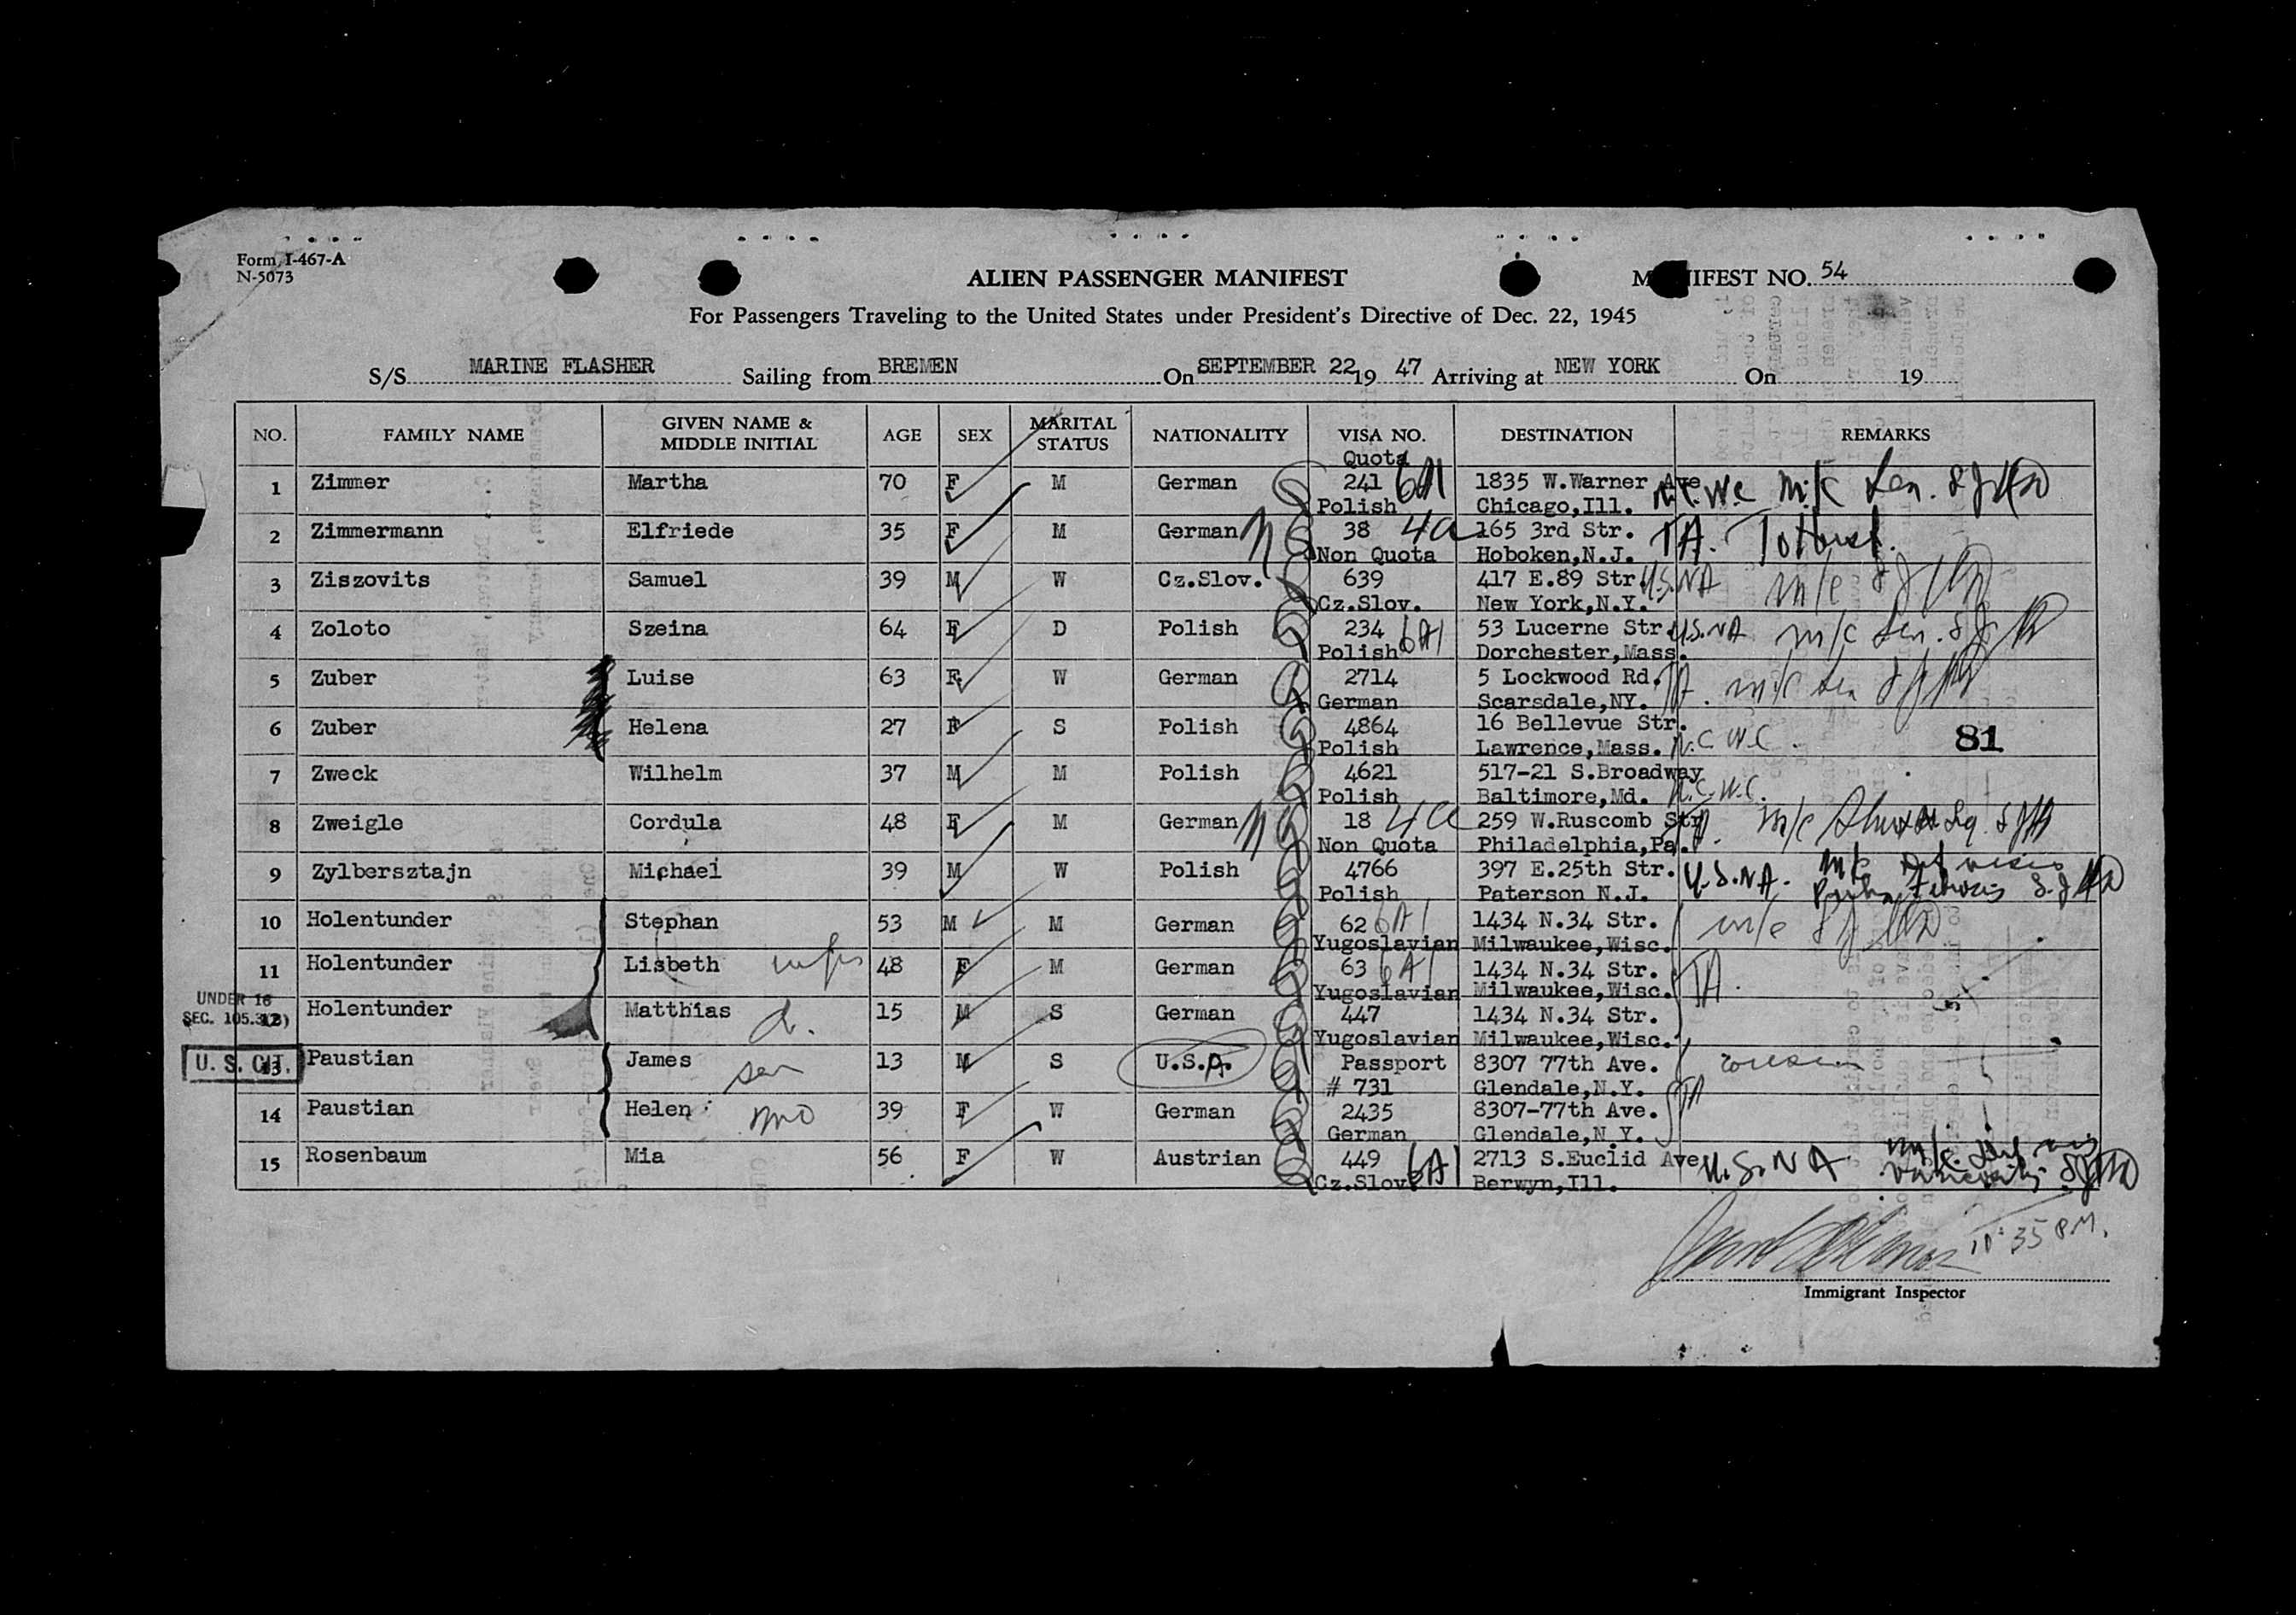 Form I-467-A
N-5073
ALIEN PASSENGER MANIFEST
MANIFEST NO. 54
For Passengers Traveling to the United States under President's Directive of Dec. 22, 1945
S/S MARINE FLASHER Sailing from BREMEN On SEPTEMBER 22 19 47 Arriving at NEW YORK On 19
NO. FAMILY NAME GIVEN NAME & MIDDLE INITIAL AGE SEX MARITAL STATUS NATIONALITY VISA NO. DESTINATION REMARKS
Quota
1 Zimmer Martha 70 F M German 241 6A1 1835 W.Warner Ave N.C.W.C m/c Sen.
Polish Chicago,Ill.
2 Zimmermann Elfriede 35 F M German N 38 4a 165 3rd Str. TA. To Husb.
Non Quota Hoboken,N.J.
3 Ziszovits Samuel 39 M W Cz.Slov. 639 417 E.89 Str. U.S.NA m/c
Cz.Slov. New York,N.Y.
4 Zoloto Szeina 64 F D Polish 234 6A1 53 Lucerne Str. U.S.NA m/c Sen.
Polish Dorchester,Mass.
5 Zuber Luise 63 F W German 2714 5 Lockwood Rd. TA. m/c Sen
German Scarsdale,NY.
6 Zuber Helena 27 F S Polish 4864 16 Bellevue Str. N.C.W.C. 81
Polish Lawrence,Mass.
7 Zweck Wilhelm 37 M M Polish 4621 517-21 S.Broadway N.C.W.C.
Polish Baltimore,Md.
8 Zweigle Cordula 48 F M German N 18 4a 259 W.Ruscomb Str TA. m/c
Non Quota Philadelphia,Pa.
9 Zylbersztajn Michael 39 M W Polish 4766 397 E.25th Str. U.S.NA. m/c
Polish Paterson N.J.
10 Holentunder Stephan 53 M M German 62 6A1 1434 N.34 Str. m/c
Yugoslavian Milwaukee,Wisc.
11 Holentunder Lisbeth wife 48 F M German 63 6A1 1434 N.34 Str. TA.
Yugoslavian Milwaukee,Wisc.
UNDER 16
SEC. 105.3(B)
12 Holentunder Matthias 15 M S German 447 1434 N.34 Str.
Yugoslavian Milwaukee,Wisc.
U. S. CIT.
13 Paustian James son 13 M S U.S.A. Passport 8307 77th Ave.
# 731 Glendale,N.Y. TA
14 Paustian Helen mo 39 F W German 2435 8307-77th Ave.
German Glendale,N.Y.
15 Rosenbaum Mia 56 F W Austrian 449 6A1 2713 S.Euclid Ave U.S.NA m/c
Cz.Slov. Berwyn,Ill.
10:35 P.M.
Immigrant Inspector